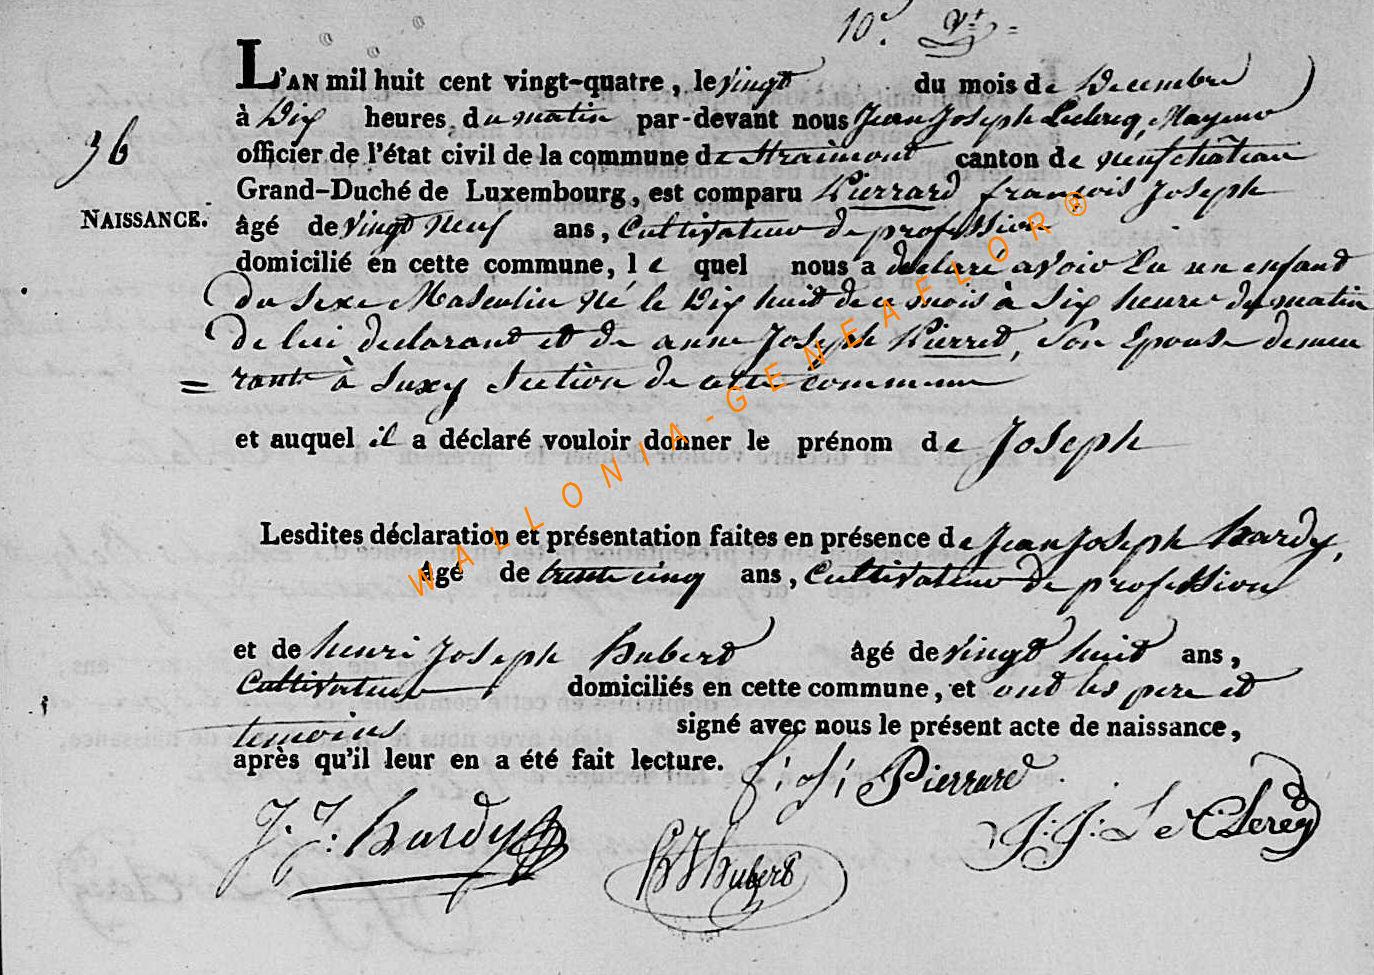 10e. Vt =
L'AN mil huit cent vingt-quatre, le vingt du mois de Decembre
à Dix heures du matin par-devant nous Jean Joseph Leclercq, Mayeur
officier de l'état civil de la commune de Straimont canton de neufchâteau
Grand-Duché de Luxembourg, est comparu Pierrard françois Joseph
36
NAISSANCE.
âgé de vingt neuf ans, Cultivateur de profession
domicilié en cette commune, le quel nous a declaré avoir Eu un enfant
du sexe Masculin né le Dix huit de ce mois à six heures du matin
De lui declarant et de anne Joseph Pierret, son Epouse demeu
= rante à Suxy Section de cette commune
et auquel il a déclaré vouloir donner le prénom de Joseph
Lesdites déclaration et présentation faites en présence de Jean Joseph hardy,
âgé de trente cinq ans, Cultivateur de profession
et de henri Joseph hubert âgé de vingt huit ans,
Cultivateur domiciliés en cette commune, et ont les pere et
temoins signé avec nous le présent acte de naissance,
après qu'il leur en a été fait lecture.
f: J: Pierrard
J. J: hardy
H J hubert
J: J: Le Clercq
WALLONIA-GENEAFLOR®